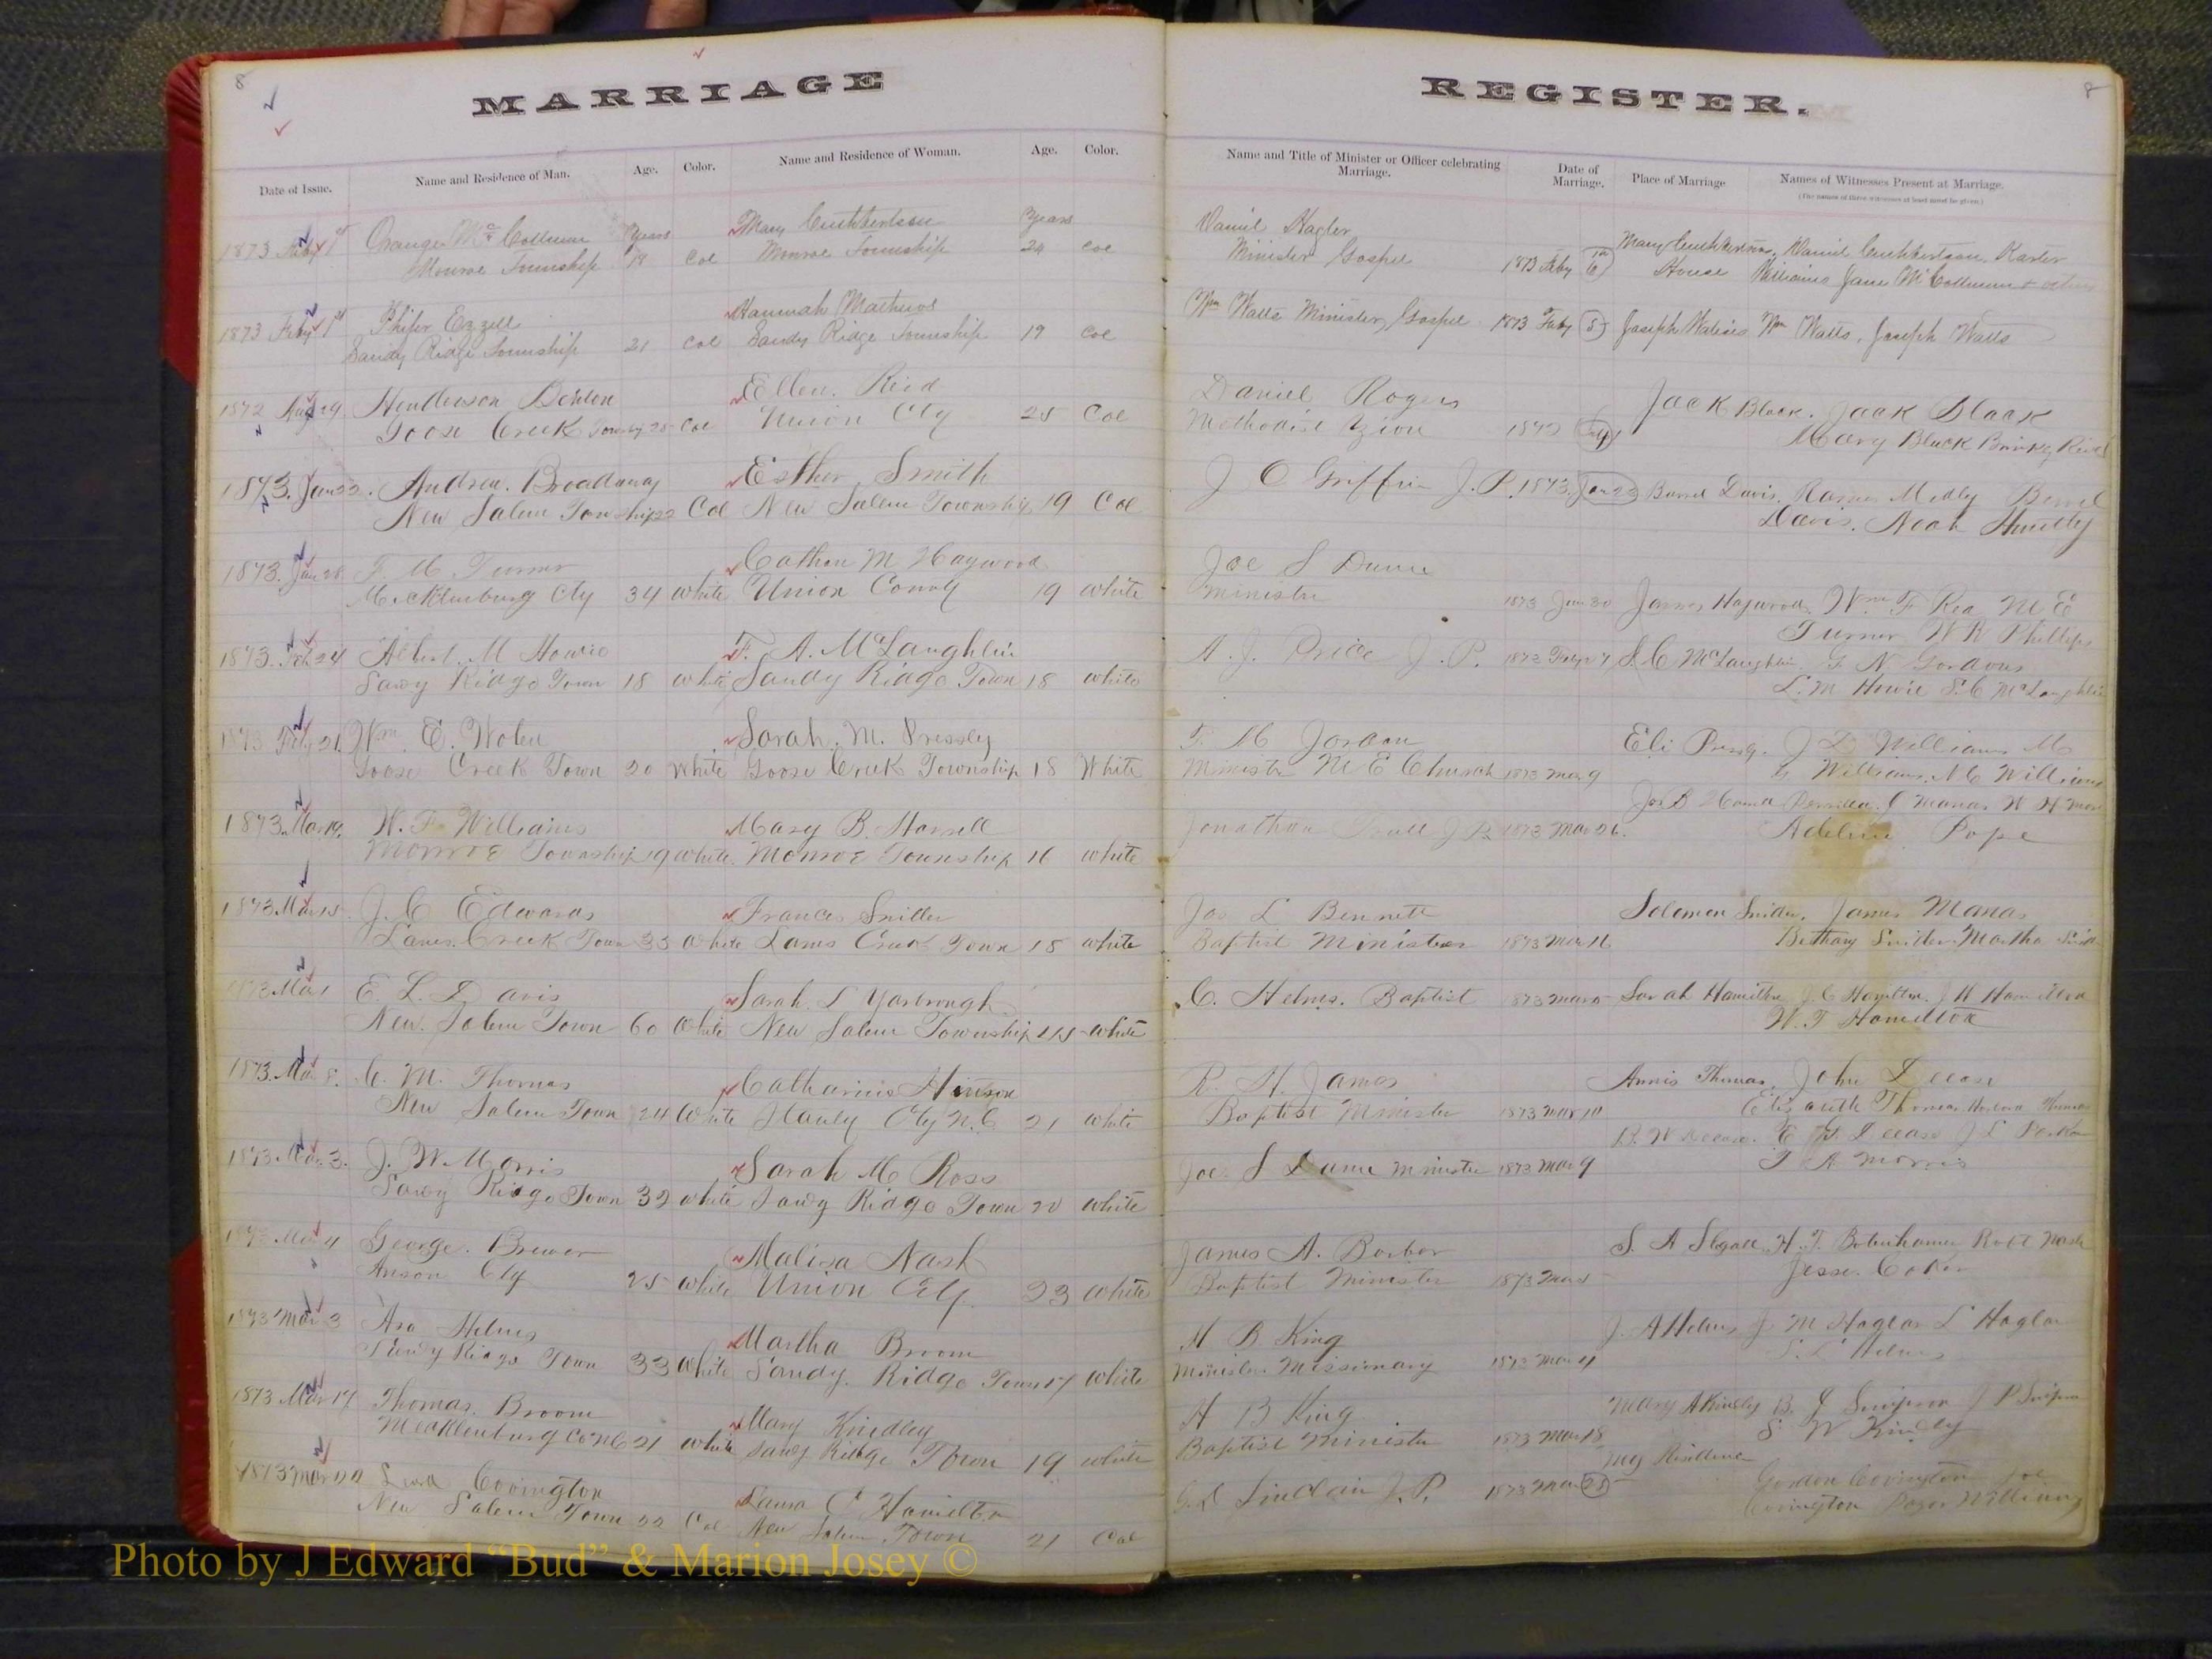 8
MARRIAGE
Date of Issue. Name and Residence of Man. Age. Color. Name and Residence of Woman. Age. Color.
1873 Feby 1st Orange McCollum Years Mary Cuthbertson Years
Monroe Township 19 Col Monroe Township 24 Col
1873 Feby 1st Phifer Ezzell Hannah Mathews
Sandy Ridge Township 21 Col Sandy Ridge Township 19 Col
1872 Aug 29 Henderson Ellen. Reid
Goose Creek Col Union Cty 25 Col
1873. Jan 22. Andrew. Broadway Esther Smith
New Salem Township 22 Col New Salem Township 19 Col
1873. Jan 28 F M Turner M Haywood
Mecklenburg Cty 34 White Union County 19 white
1873. Feb 24 Albert. M Howie F. A. McLaughlin
Ridge Town 18 white Sandy Ridge Town 18 white
1873 Feby 21. Wm. E. Sarah. M. Pressly
Goose Creek Town 20 White Goose Creek Township 18 White
1873. Mar 19. W. F. Williams Mary B. Harrell
Monroe Township 19 white. Monroe Township 16 white
1873. Mar 15. J. C Edwards Frances Snider
Lanes Creek Town 33 White Lanes Creek Town 18 white
1873 Mar 1 E. L. Davis Sarah. L Yarbrough
New. Salem Town 60 White New Salem Township 45 white
1873. Mar 8. C. M. Thomas Catharine Hinson
New Salem Town 24 White Stanly Cty N. C 21 white
1873. Mar. 3. J. W. Morris Sarah M Ross
Ridge Town 32 white Ridge Town 20 white
1873 Mar 4 George. Brewer Malisa Nash
Anson Cty 25 white Union Cty. 23 white
1873 Mar 3 Asa Helms Martha Broom
Ridge Town 33 White Sandy. Ridge Town 17 white
1873 Mar 17 Thomas. Broom Mary Kindley
Mecklenburg Co NC 21 white Ridge Town 19 white
1873 Mar Covington Laura Hamilton
New Salem Town 22 Col New Salem Town 21 Col
REGISTER.
8
Name and Title of Minister or Officer celebrating Marriage. Date of Marriage. Place of Marriage Names of Witnesses Present at Marriage.
(The names of three witnesses at least must be given.)
Daniel Hagler Mary Cuthbertsons, Daniel Cuthbertson, Karter
Minister Gospel 1873 Feby House Williams Jane McCollum & others
Wm Watts Minister, Gospel 1873 Feby 5 Joseph Wm Watts, Joseph Watts
Daniel Rogers Jack Black. Jack Black
Methodist Zion 1872 Mary Black Reid
J C Griffin J. P. 1873. Jan 23 Davis. Medly
Davis. Noah
Joe S
Minister 1873 Jan 30 James Haywoods Wm F Rea M E
Turner W R Phillips
A. J. Price J. P. 1873 S. C McLaughlin G N Gordons
L. M Howie S. C McLaughlin
F. M Jordan Eli Williams
Minister M E Church 1873 Mar 9 Williams. M C Williams
Jonathan J P. 1873 Mar 26. Adeline Pope
Jas L Bennett Solomon Snider. James Manas
Baptist Minister 1873 Mar 16 Bethany Snider Martha
C. Helms. Baptist 1873 Mar Sarah Hamilton J. C Hamilton. J W Hamilton
W. T Hamilton
R. H. James Annis Thomas. John
Baptist Minister 1873 Mar 10 Elizabeth Thomas
Joe. S Minister 1873 Mar 9 Morris
James A. S. A Robt Nash
Baptist Minister 1873 Mar Jesse.
H B King J. A Helms J. M Haglar L Haglar
Minister Missionary 1873 Mar 4 Helms
H B King Mary A Kindley
Baptist Minister 1873 Mar 18 S. W Kindley
My Residence
Sinclair J. P. 1873 Mar 25 Gordon Covington
Covington Williams
Photo by J Edward “Bud” & Marion Josey ©